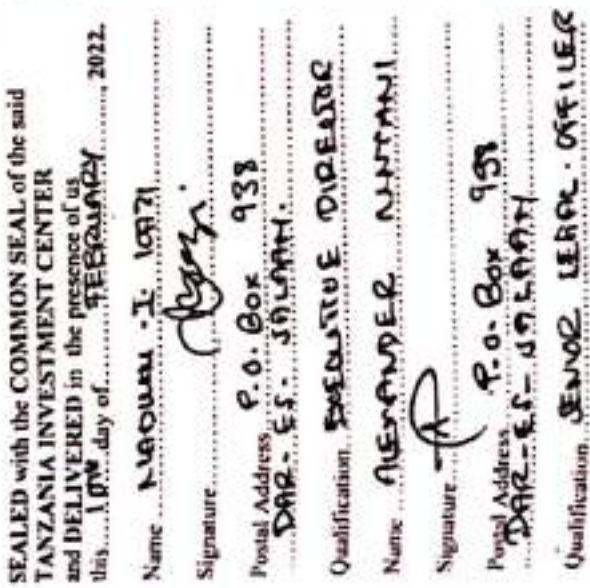 SEALED with the COMMON SEAL of the said
TANZANIA INVESTMENT CENTER
and DELIVERED in the presence of us
this 10th day of FEBRUARY, 2022.
Name
Signature
Postal Address P.O. BOX 938
DAR-ES-SALAAM.
Qualification EXECUTIVE DIRECTOR
Name ALEXANDER
Signature
Postal Address P.O. BOX 938
DAR-ES-SALAAM
Qualification SENIOR LEGAL OFFICER